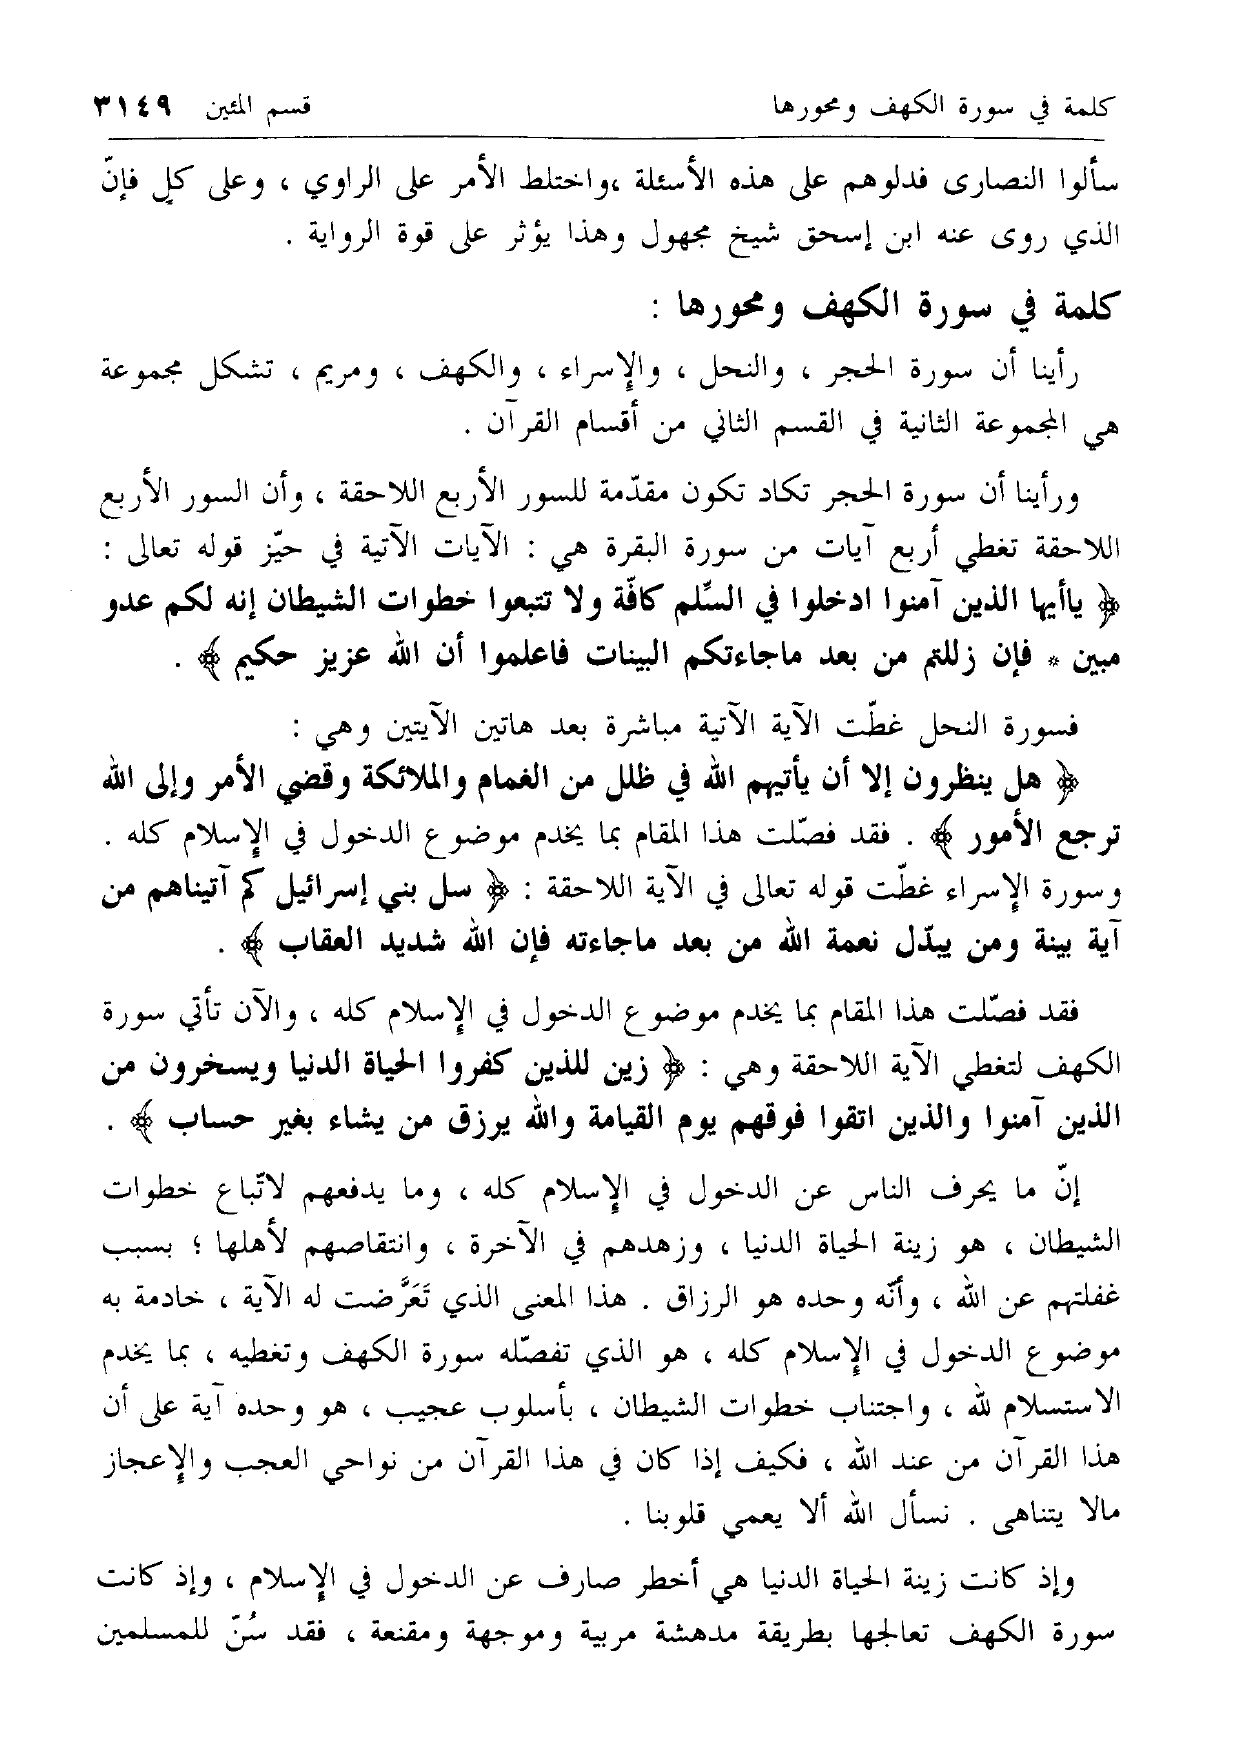 كلمة في سورة الكهف ومحورها قسم المئين ٣١٤٩
سألوا النصارى فدلوهم على هذه الأسئلة ،واختلط الأمر على الراوي ، وعلى كلٍ فإنّ
الذي روى عنه ابن إسحق شيخ مجهول وهذا يؤثر على قوة الرواية .
كلمة في سورة الكهف ومحورها :
رأينا أن سورة الحجر ، والنحل ، والإسراء ، والكهف ، ومريم ، تشكل مجموعة
هي المجموعة الثانية في القسم الثاني من أقسام القرآن .
ورأينا أن سورة الحجر تكاد تكون مقدّمة للسور الأربع اللاحقة ، وأن السور الأربع
اللاحقة تغطي أربع آيات من سورة البقرة هي : الآيات الآتية في حيّز قوله تعالى :
﴿ ياأيها الذين آمنوا ادخلوا في السِّلم كافّة ولا تتبعوا خطوات الشيطان إنه لكم عدو
مبين * فإن زللتم من بعد ماجاءتكم البينات فاعلموا أن الله عزيز حكيم ﴾ .
فسورة النحل غطّت الآية الآتية مباشرة بعد هاتين الآيتين وهي :
﴿ هل ينظرون إلا أن يأتيهم الله في ظلل من الغمام والملائكة وقضي الأمر وإلى الله
ترجع الأمور ﴾ . فقد فصّلت هذا المقام بما يخدم موضوع الدخول في الإسلام كله .
وسورة الإسراء غطّت قوله تعالى في الآية اللاحقة : ﴿ سل بني إسرائيل كم آتيناهم من
آية بينة ومن يبدّل نعمة الله من بعد ماجاءته فإن الله شديد العقاب ﴾ .
فقد فصّلت هذا المقام بما يخدم موضوع الدخول في الإسلام كله ، والآن تأتي سورة
الكهف لتغطي الآية اللاحقة وهي : ﴿ زين للذين كفروا الحياة الدنيا ويسخرون من
الذين آمنوا والذين اتقوا فوقهم يوم القيامة والله يرزق من يشاء بغير حساب ﴾ .
إنّ ما يحرف الناس عن الدخول في الإسلام كله ، وما يدفعهم لاتّباع خطوات
الشيطان ، هو زينة الحياة الدنيا ، وزهدهم في الآخرة ، وانتقاصهم لأهلها ؛ بسبب
غفلتهم عن الله ، وأنّه وحده هو الرزاق . هذا المعنى الذي تَعَرَّضت له الآية ، خادمة به
موضوع الدخول في الإسلام كله ، هو الذي تفصّله سورة الكهف وتغطيه ، بما يخدم
الاستسلام لله ، واجتناب خطوات الشيطان ، بأسلوب عجيب ، هو وحده آية على أن
هذا القرآن من عند الله ، فكيف إذا كان في هذا القرآن من نواحي العجب والإعجاز
مالا يتناهى . نسأل الله ألا يعمي قلوبنا .
وإذ كانت زينة الحياة الدنيا هي أخطر صارف عن الدخول في الإسلام ، وإذ كانت
سورة الكهف تعالجها بطريقة مدهشة مربية وموجهة ومقنعة ، فقد سُنّ للمسلمين